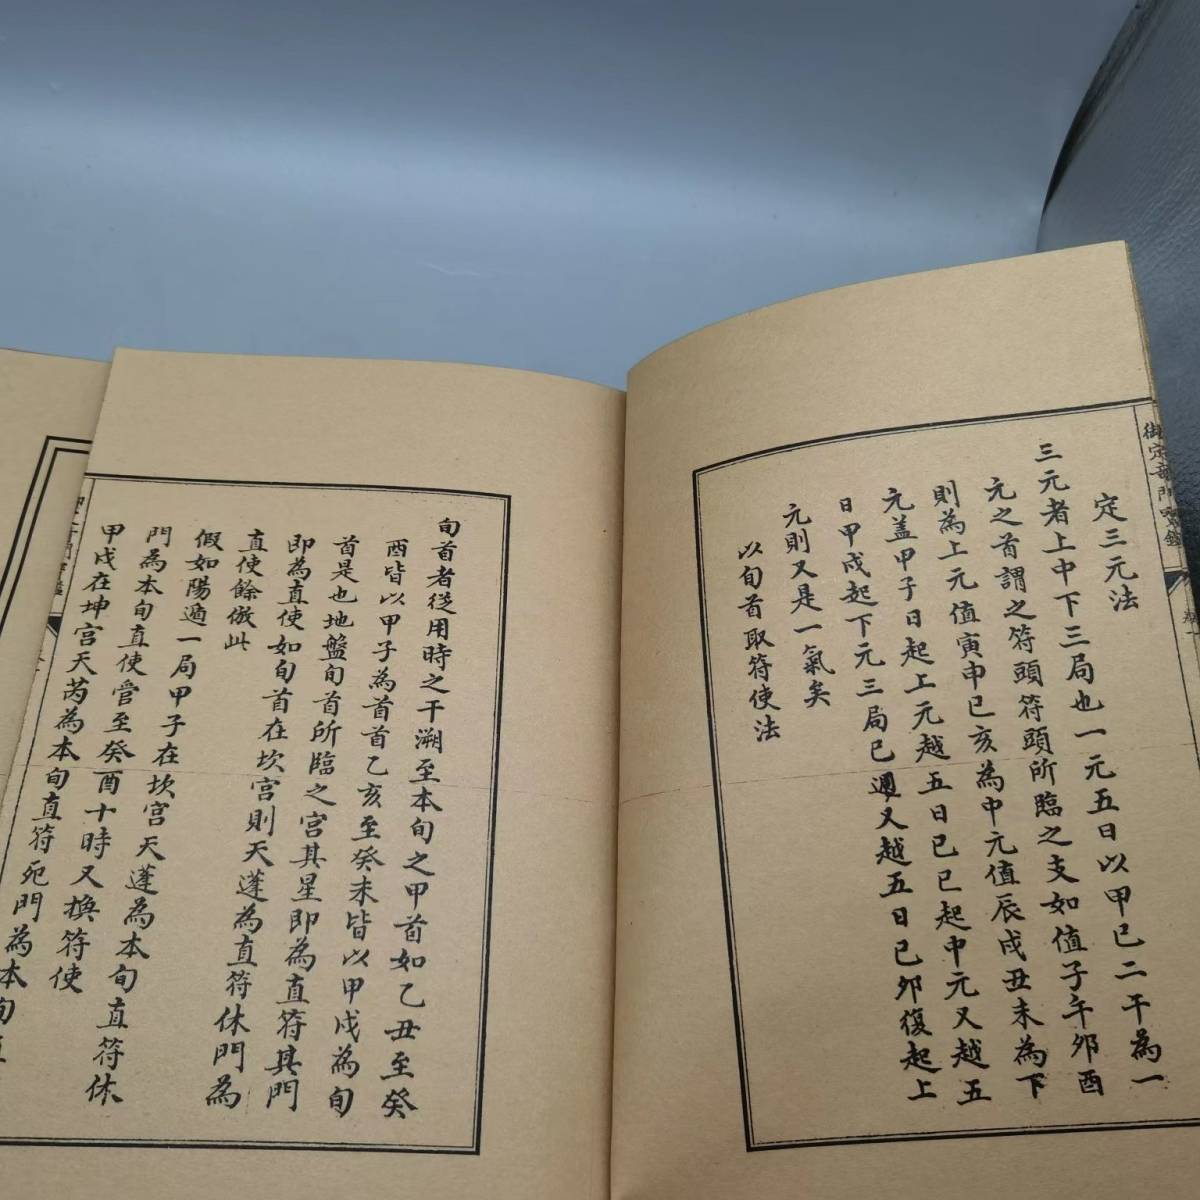 御定奇門寶鑑
定三元法
三元者上中下三局也一元五日以甲己二干為一
元之首謂之符頭符頭所臨之支如值子午夘酉
則為上元值寅申巳亥為中元值辰戌丑未為下
元盖甲子日起上元越五日己巳起中元又越五
日甲戌起下元三局已週又越五日己夘復起上
元則又是一氣矣
以旬首取符使法
旬首者從用時之干溯至本旬之甲首如乙丑至癸
酉皆以甲子為首首乙亥至癸未皆以甲戌為旬
首是也地盤旬首所臨之宮其星即為直符其門
即為直使如旬首在坎宮則天蓬為直符休門為
直使餘倣此
假如陽遁一局甲子在坎宮天蓬為本旬直符休
門為本旬直使管至癸酉十時又換符使
甲戌在坤宮天芮為本旬直符死門為本旬直